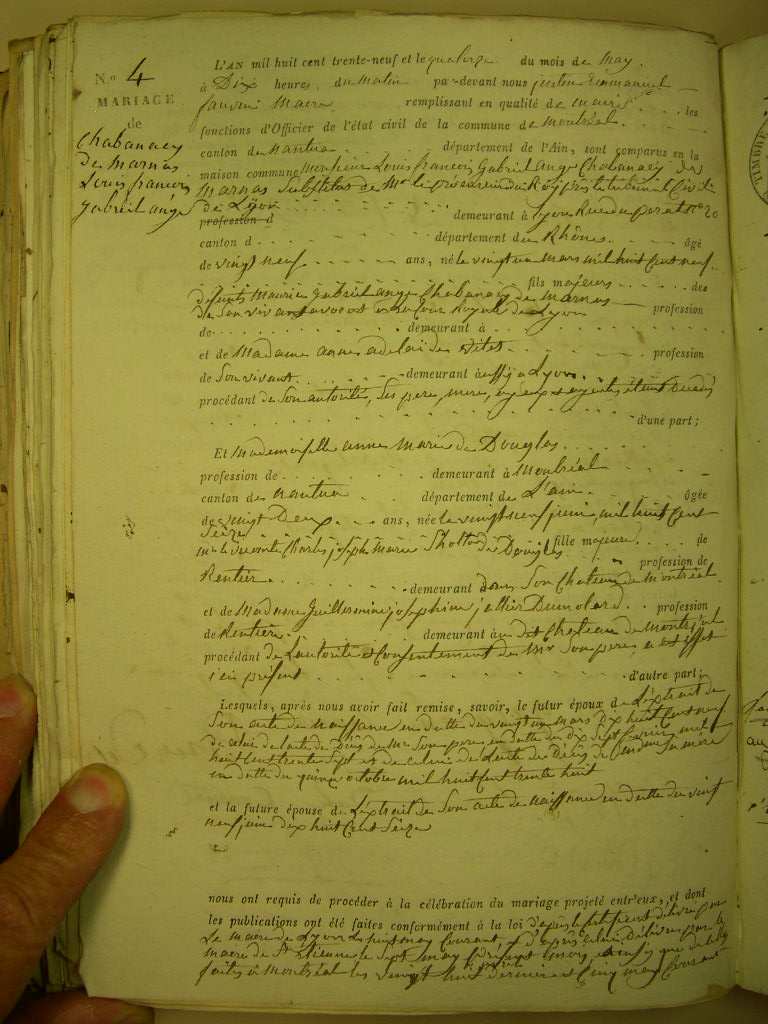 N.o 4
MARIAGE
de
Chabanacy
de Marnas
Louis françois
gabriel ange
L'AN mil huit cent trente-neuf et le quatorze du mois de May.
à Dix heures du matin par-devant nous justin Emmanuel
maire remplissant en qualité de maire les
fonctions d'Officier de l'état civil de la commune de montréal
canton de Nantua département de l'Ain, sont comparus en la
maison commune Monsieur Louis francois Gabriel Ange Chabanacy de
Marnas Substitut de Mr le procureur du Roy près le tribunal Civil
de Lyon
profession d demeurant à Lyon Rue du no 20
canton d département du Rhône âgé
de vingt neuf ans, né le vingt un mars mil huit Cent neuf
fils majeur des
défunts Maurice Gabriel ange Chabanacy de Marnas
de Son vivant avocat Cour Royale de Lyon profession
de demeurant à
et de Madame anne adelaïde profession
de Son vivant demeurant à aussi a Lyon
procédant de Son autorité, Ses pere, mere, étant Décédés
d'une part;
Et Mademoiselle anne Marie de Douglas
profession de demeurant à Montréal
canton de Nantua département de L'ain âgée
de vingt Deux ans, née le vingt neuf juin, mil huit Cent
Seize fille majeure de
Mr le vicomte Charles joseph Marie Sholto de Douglas profession de
Rentier demeurant dans Son Chateau de Montréal
et de Madame Guillermine josephine Dumolard profession
de Rentiere demeurant au dit Chateau de Montréal
procédant de L'autorité et Consentement de Mr Son pere a cet effet
ici présent d'autre part;
Lesquels, après nous avoir fait remise, savoir, le futur époux de L'extrait de
Son acte de Naissance en datte du vingt un Mars Dix huit Cent neuf
de celui de l'acte de Décès de Mr Son pere en datte du Dix Sept mil
huit Cent trente Sept et de Celui de L'acte de Décès de Dame Sa mere
en datte du quinze octobre mil huit Cent trente huit
et la future épouse de L'extrait de Son acte de naissance en datte du vingt
neuf juin dix huit Cent Seize
nous ont requis de procéder à la célébration du mariage projeté entr'eux, et dont
les publications ont été faites conformément à la loi d'après le délivré par
Le maire de Lyon Le huit may Courant, et d'après Celui délivré par le
maire de St Etienne le Sept may
faites à Montréal les vingt huit dernier et Cinq may Courant